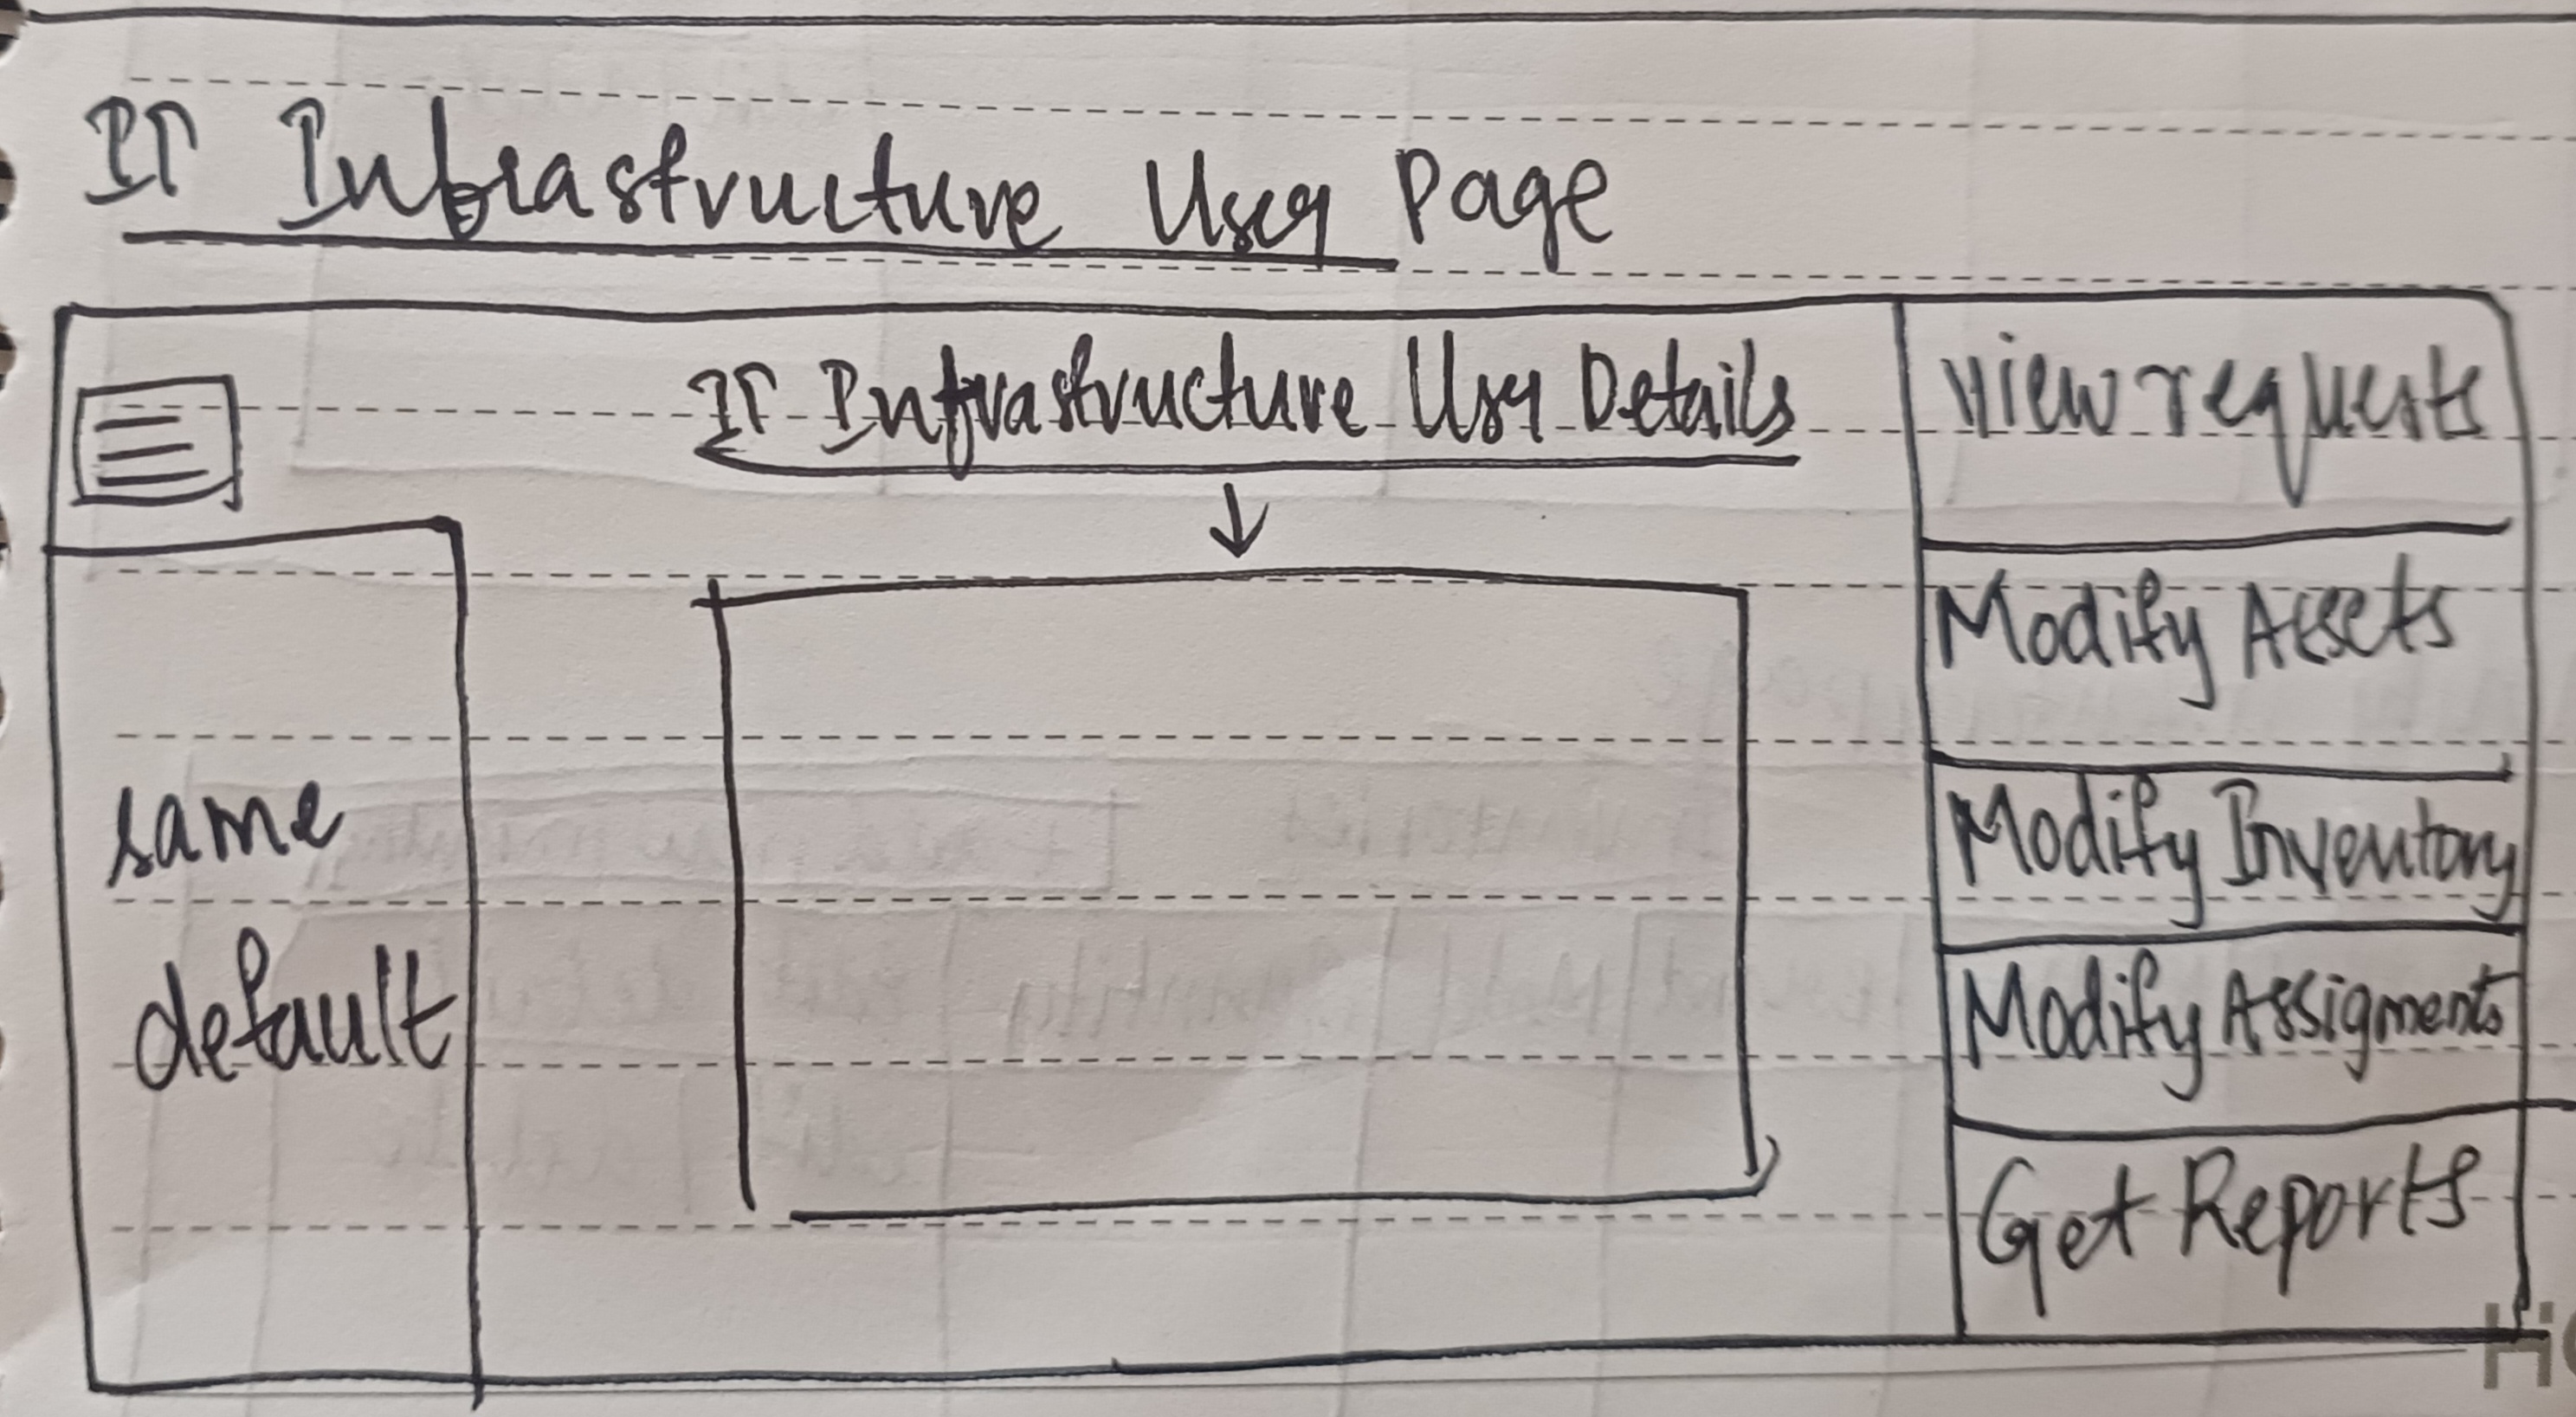 IT Infrastructure User Page
IT Infrastructure User Details
same
default
View requests
Modify Assets
Modify Inventory
Modify Assigments
Get Reports